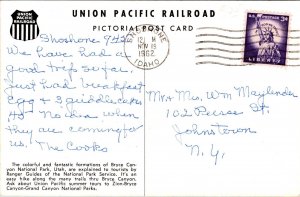 UNION PACIFIC RAILROAD
PICTORIAL POST CARD
UNION
PACIFIC
RAILROAD
NOV 19
1962
IDAHO
U.S. POSTAGE
3¢
LIBERTY
Shoshone
We have had a
good trip so far.
just had breakfast
egg &
No idea when
they are coming for
us. The Cooks
Mr & Mrs. Wm Maylender
102 Pierce St.
Johnstown
N.Y.
The colorful and fantastic formations of Bryce Can-
yon National Park, Utah, are explained to tourists by
Ranger Guides of the National Park Service. It's an
easy hike along the many trails thru Bryce Canyon.
Ask about Union Pacific summer tours to Zion-Bryce
Canyon-Grand Canyon National Parks.